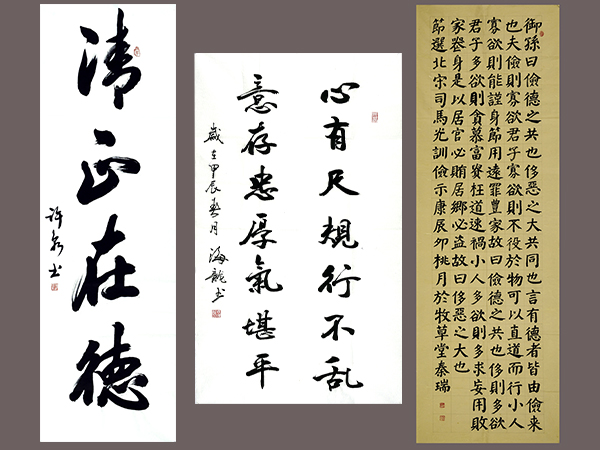 清正在德
许泉书
心有尺規行不乱
意存忠厚氣堪平
歲在甲辰春月 海龍书
御孫曰儉德之共也侈惡之大共同也言有德者皆由儉來
也夫儉則寡欲君子寡欲則不役於物可以直道而行小人
寡欲則能謹身節用遠罪豐家故曰儉德之共也侈則多欲
君子多欲則貪慕富貴枉道速禍小人多欲則多求妄用敗
家喪身是以居官必賄居鄉必盜故曰侈惡之大也
節選北宋司馬光訓儉示康辰卯桃月於牧草堂秦瑞